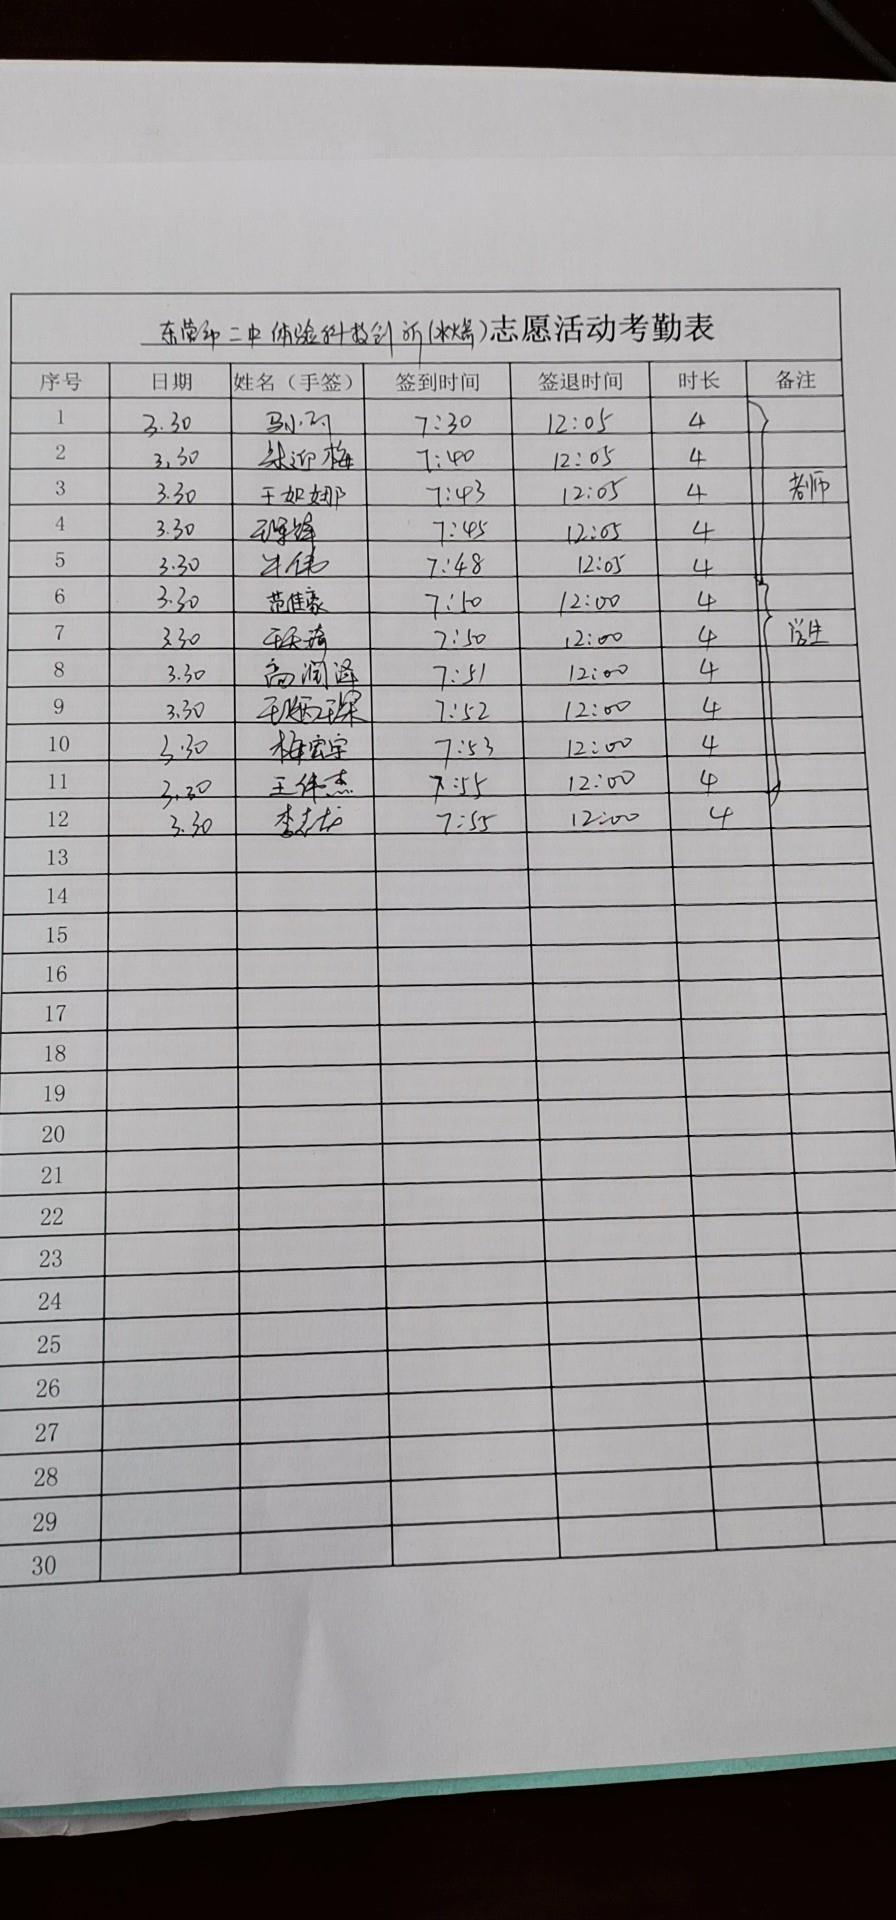 东营市二中体验科技创新(水火箭)志愿活动考勤表
序号 日期 姓名（手签） 签到时间 签退时间 时长 备注
1 3.30 7:30 12:05 4
2 3.30 朱迎梅 7:40 12:05 4
3 3.30 王如娜 7:43 12:05 4 老师
4 3.30 7:45 12:05 4
5 3.30 牛伟 7:48 12:05 4
6 3.30 范佳豪 7:50 12:00 4
7 3.30 7:50 12:00 4 学生
8 3.30 高润泽 7:51 12:00 4
9 3.30 7:52 12:00 4
10 3.30 梅宏宇 7:53 12:00 4
11 3.30 王伟杰 7:55 12:00 4
12 3.30 李志龙 7:55 12:00 4
13
14
15
16
17
18
19
20
21
22
23
24
25
26
27
28
29
30